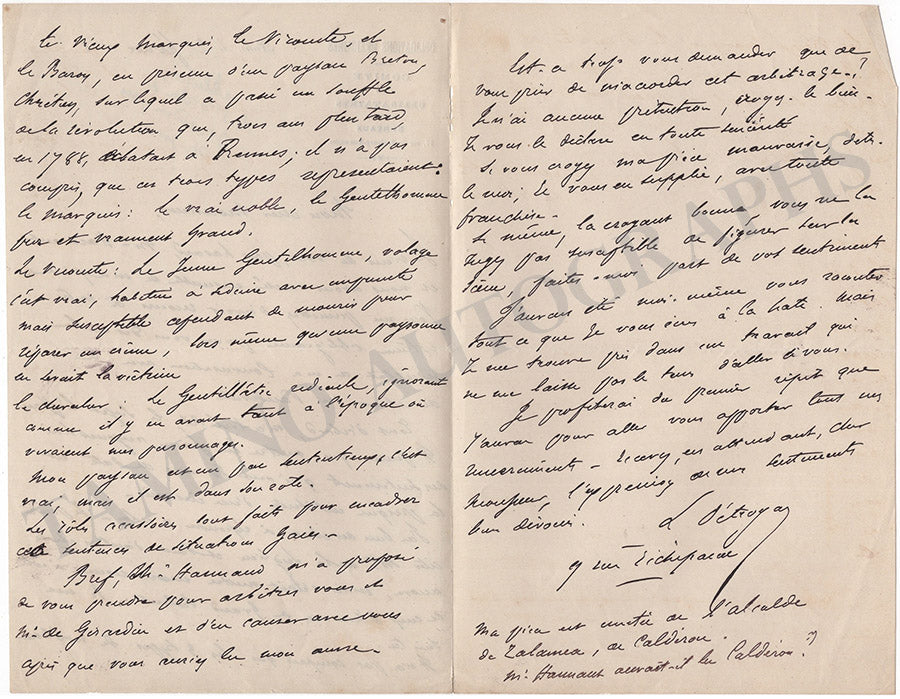 le vieux marquis, le Vicomte, et
le Baron, en présence d'un paysan Breton,
Chrétien, sur lequel a passé un souffle
de la révolution qui, trois ans plus tard,
en 1788, éclatait à Rennes; il n'a pas
compris, que ces trois types représentaient:
le marquis: le vrai noble, le Gentilhomme
fier et vraiment grand.
Le Vicomte: Le Jeune Gentilhomme, volage
c'est vrai, habitué à séduire avec impunité
mais susceptible cependant de mourir pour
réparer un crime, lors même qu'une paysanne
en serait la victime
le chevalier: Le Gentillâtre ridicule, ignorant
comme il y en avait tant à l'époque où
vivaient mes personnages.
Mon paysan est un peu sentencieux, c'est
vrai, mais il est dans son rôle.
Les rôles accessoires sont faits pour encadrer
ces sentences de situations gaies -
Bref, Mr Hannaud m'a proposé
de vous prendre pour arbitres vous et
Mr de Girardin et d'en causer avec vous
après que vous auriez lu mon œuvre -
Est-ce trop vous demander que de
vous prier de m'accorder cet arbitrage-?
Je n'ai aucune prétention, croyez-le bien-
Je vous le déclare en toute sincérité
Si vous croyez ma pièce mauvaise, dites-
le moi, je vous en supplie, avec toute
franchise-
Si même, la croyant bonne vous ne la
jugez pas susceptible de figurer sur la
scène, faites-moi part de vos sentiments
J'aurais été moi-même vous raconter
tout ce que je vous écris à la hâte. Mais
Je me trouve pris dans un travail qui
ne me laisse pas le temps d'aller à vous.
Je profiterai du premier répit que
J'aurai pour aller vous apporter tous mes
remerciements - Recevez, en attendant, cher
Monsieur, l'expression de mes sentiments
bien dévoués.
L Détroyat
9 rue Lechipacae
Ma pièce est imitée de l'alcalde
de Zalamea, de Calderon.
Mr Hannaut aurait-il lu Calderon?
TAMINO AUTOGRAPHS